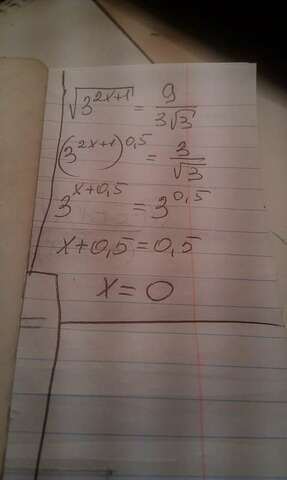 √3^{2x+1} = 9/3√3
(3^{2x+1})^{0,5} = 3/√3
3^{x+0,5} = 3^{0,5}
x+0,5=0,5
x=0